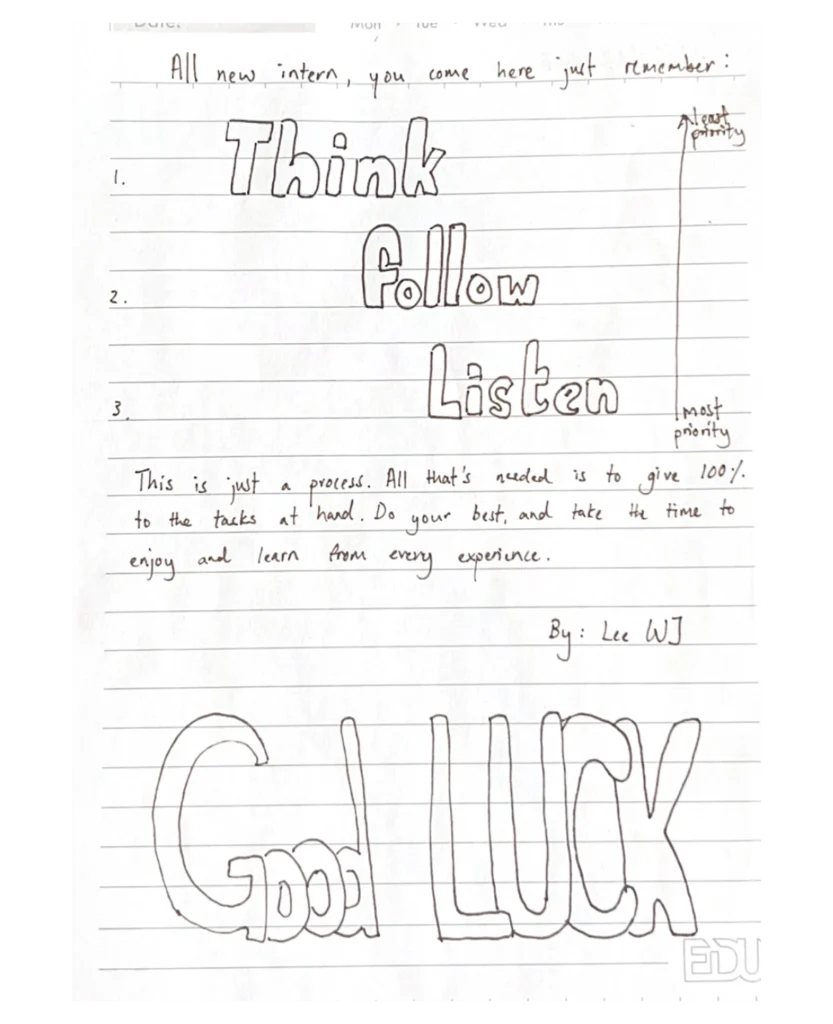 Date:
Mon Tue Wed
All new intern, you come here just remember:
least
priority
1. Think
2. follow
3. Listen
most
priority
This is just a process. All that's needed is to give 100%
to the tasks at hand. Do your best, and take the time to
enjoy and learn from every experience.
By: Lee WJ
Good LUCK
EDU